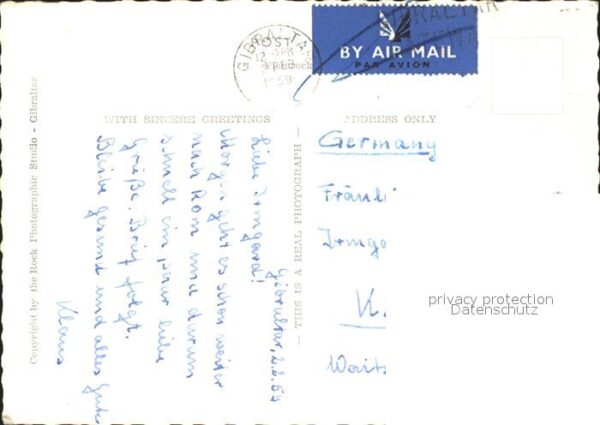 WITH SINCERE GREETINGS
ADDRESS ONLY
Copyright by the Rock Photographic Studio - Gibraltar
— THIS IS A REAL PHOTOGRAPH —
GIBRALTA
POST
12
PM
FEB
1959
GIBRALTAR
BY AIR MAIL
PAR AVION
Gibraltar, 2.2.59
Liebe Irmgard!
Morgen geht es schon weiter
nach Rom und darum
schnell ein paar liebe
Grüße. Brief folgt.
Bleibe gesund und alles Gute
Klaus
Germany
Fräuli
Irmga
K.
Wait
privacy protection
Datenschutz